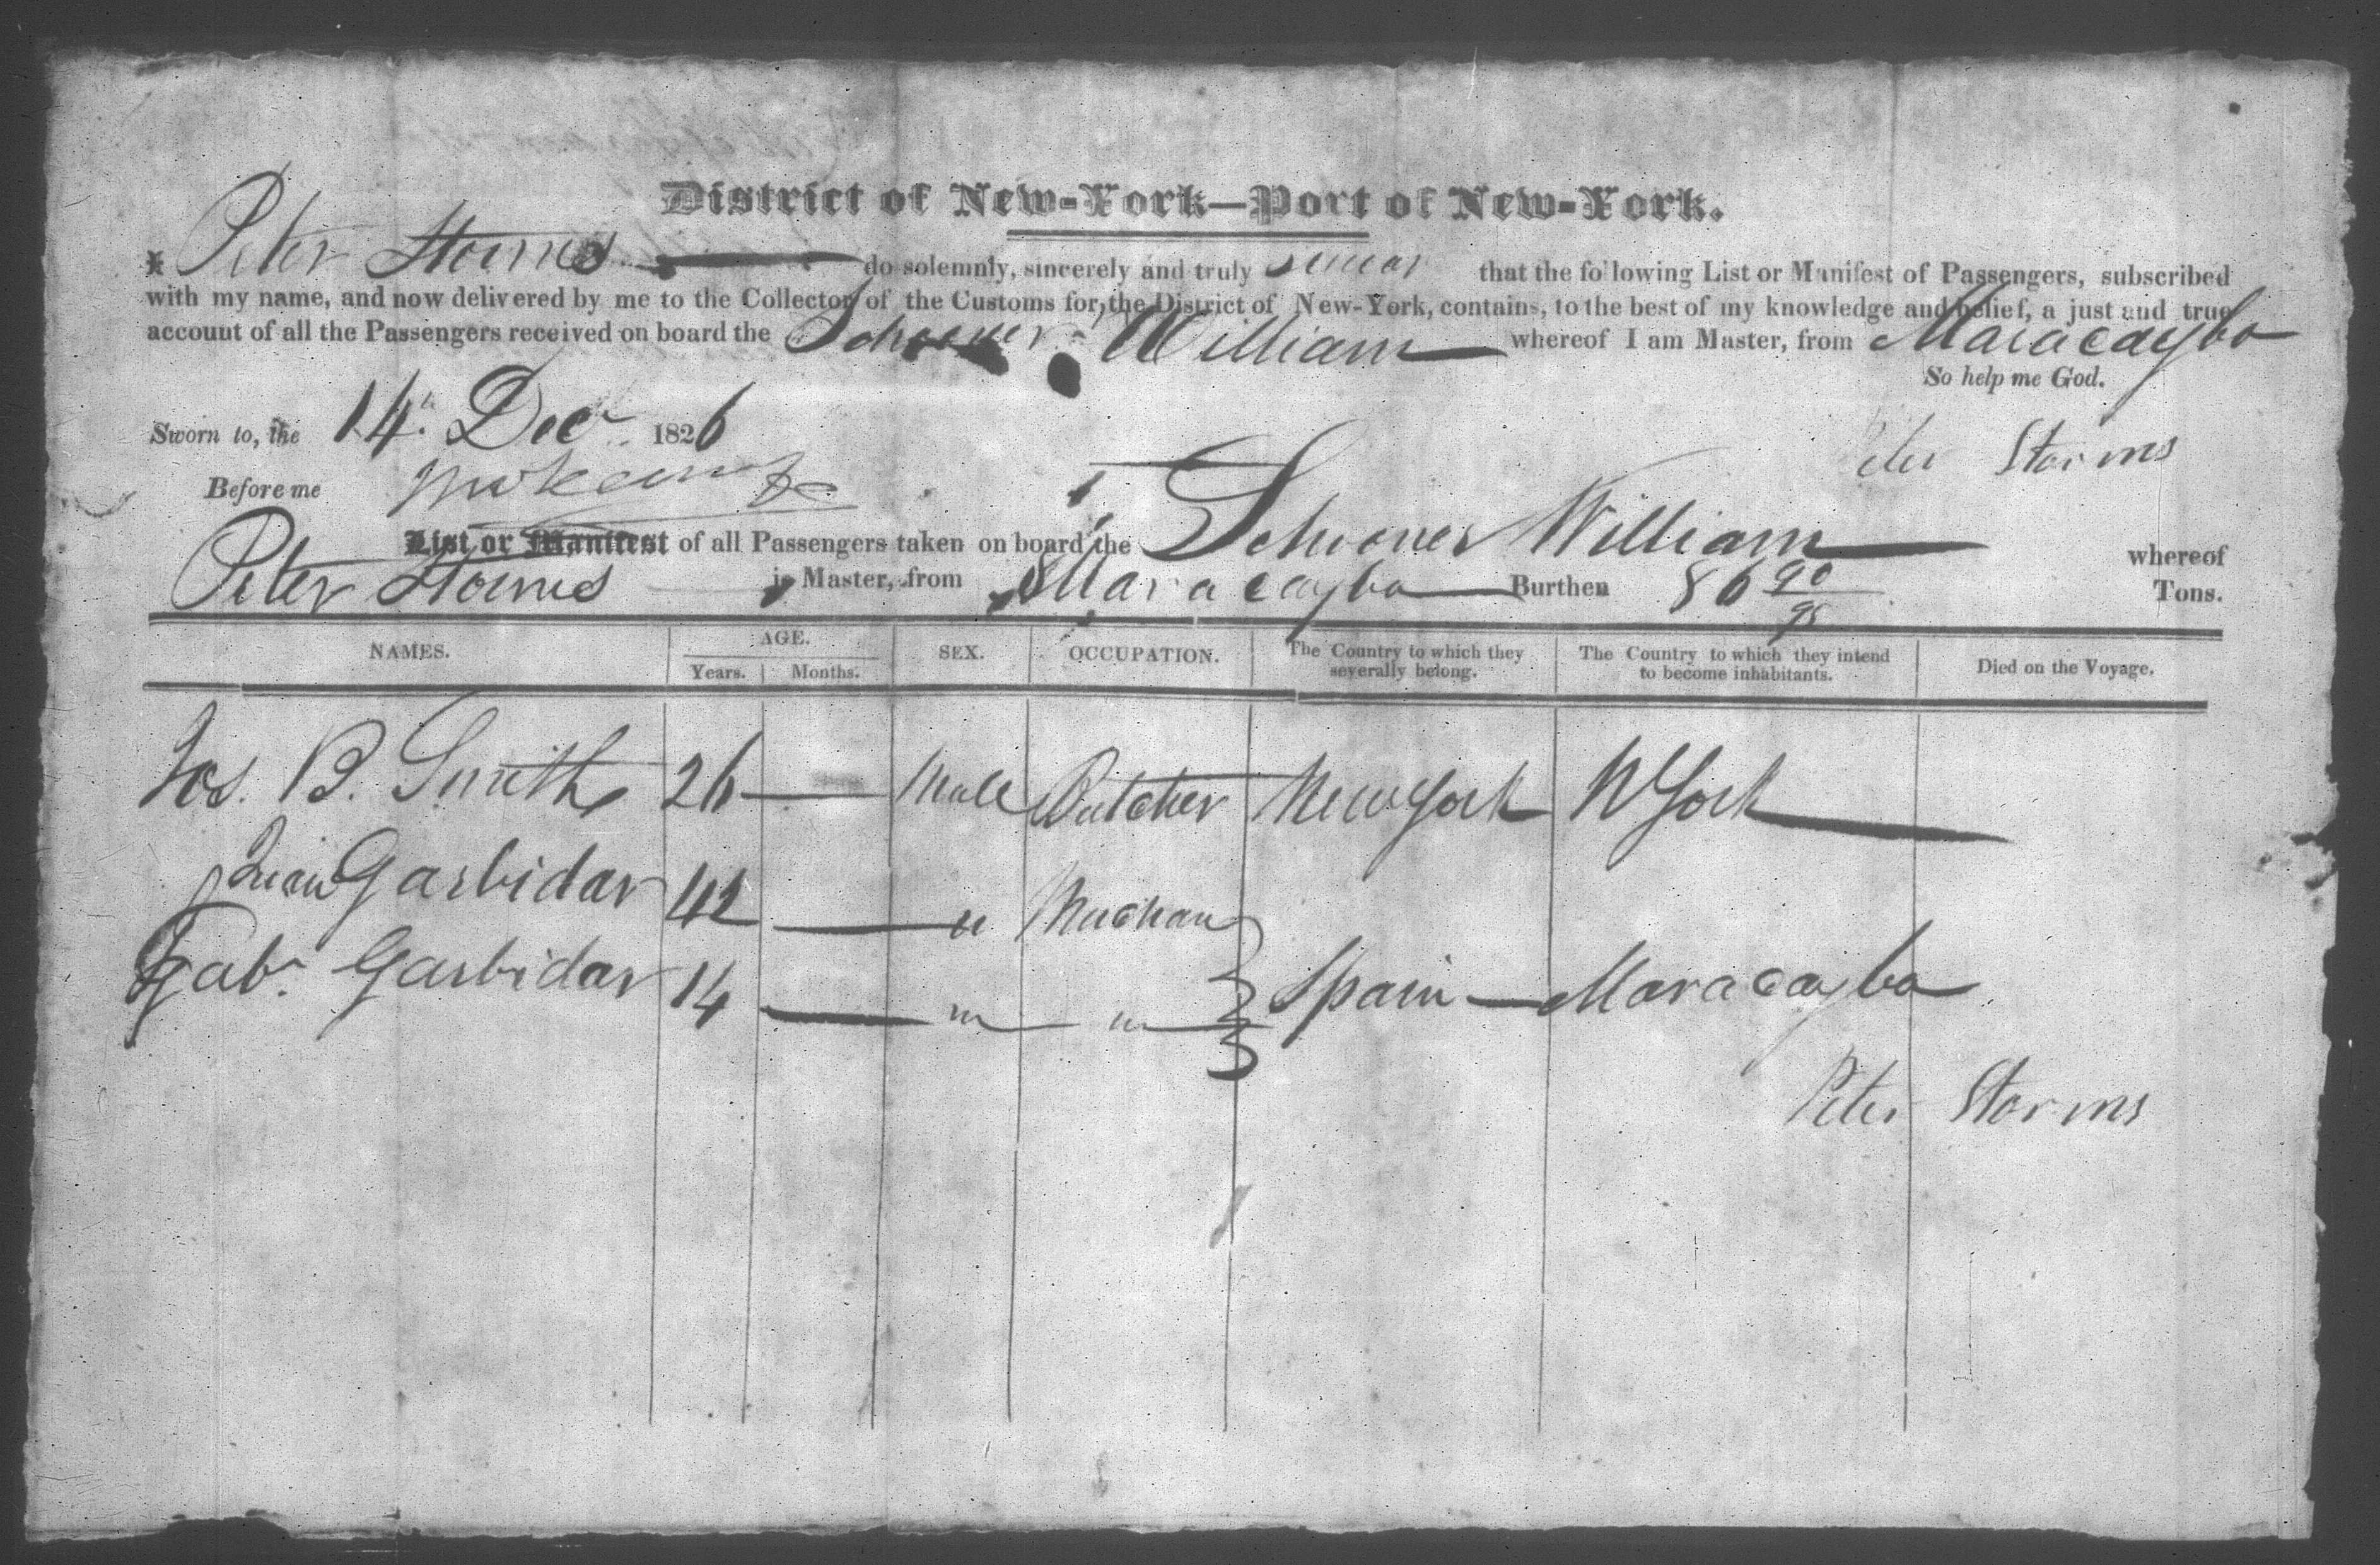 District of New-York—Port of New-York.
I Peter Storms do solemnly, sincerely and truly swear that the following List or Manifest of Passengers, subscribed
with my name, and now delivered by me to the Collector of the Customs for the District of New-York, contains, to the best of my knowledge and belief, a just and true
account of all the Passengers received on board the Schooner William whereof I am Master, from Maracaybo
So help me God.
Sworn to, the 14th Decr 1826
Peter Storms
Before me
List or Manifest of all Passengers taken on board the Schooner William whereof
Peter Storms is Master, from Maracaybo Burthen 86 90/95 Tons.
NAMES. AGE. Years. Months. SEX. OCCUPATION. The Country to which they severally belong. The Country to which they intend to become inhabitants. Died on the Voyage.
Jos. B. Smith 26 — Male Butcher New York N York
Juan Garbidar 42 — " Mechan
Gab. Garbidar 14 — " " Spain — Maracaybo
Peter Storms